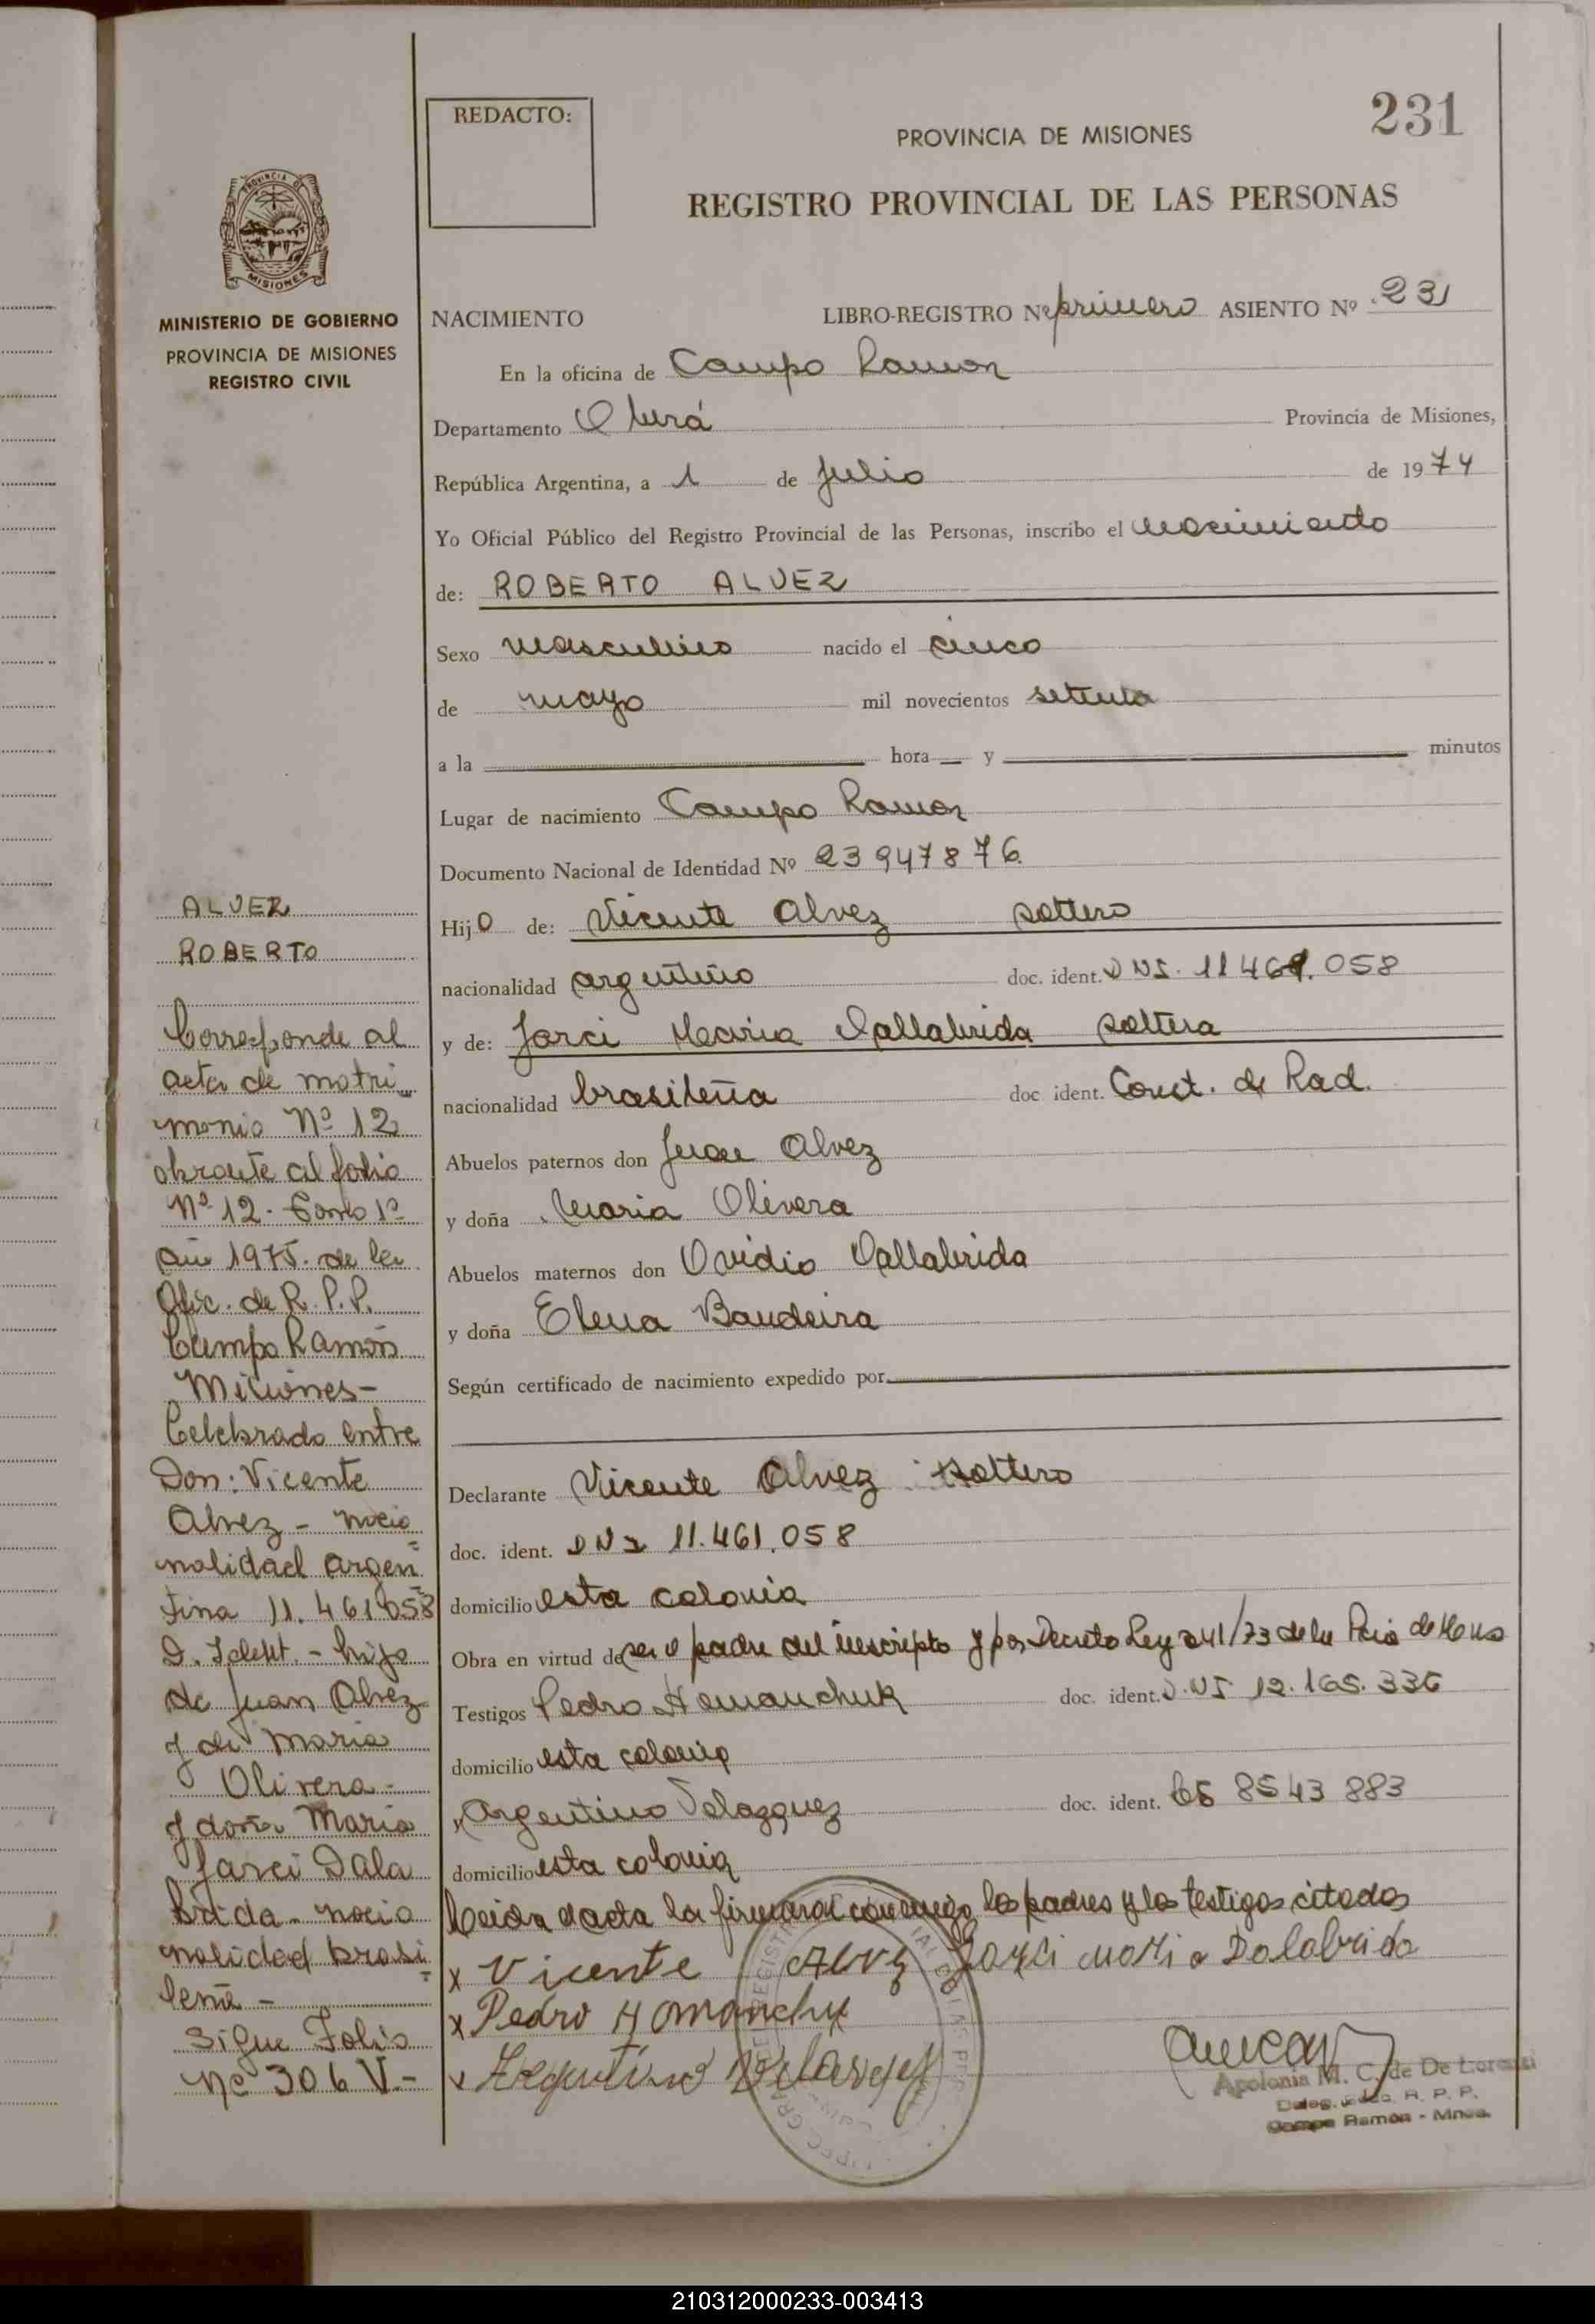 231
REDACTO:
PROVINCIA DE MISIONES
REGISTRO PROVINCIAL DE LAS PERSONAS
PROVINCIA DE
MISIONES
MINISTERIO DE GOBIERNO
PROVINCIA DE MISIONES
REGISTRO CIVIL
NACIMIENTO LIBRO-REGISTRO Nº primero ASIENTO Nº 231
En la oficina de Campo Ramon
Departamento Oberá Provincia de Misiones,
República Argentina, a 1 de Julio de 1974
Yo Oficial Público del Registro Provincial de las Personas, inscribo el nacimiento
de: ROBERTO ALVEZ
Sexo masculino nacido el cinco
de mayo mil novecientos setenta
a la hora y minutos
Lugar de nacimiento Campo Ramon
Documento Nacional de Identidad Nº 23947876
Hijo de: Vicente Alvez soltero
nacionalidad argentino doc. ident. DNI. 11461.058
y de: Jarci Maria Dallabrida soltera
nacionalidad brasileña doc ident. Const. de Rad.
Abuelos paternos don Juan Alvez
y doña Maria Olivera
Abuelos maternos don Ovidio Dallabrida
y doña Elena Bandeira
Según certificado de nacimiento expedido por
Declarante Vicente Alvez soltero
doc. ident. DNI 11.461.058
domicilio esta colonia
Obra en virtud de ser el padre del inscripto y por Decreto Ley 241/73 de la Pcia de Mnes
Testigos Pedro Homanchuk doc. ident. D.NI 12.165.336
domicilio esta colonia
y Argentino Velazquez doc. ident. 8543883
domicilio esta colonia
Leida el acta la firman conmigo los padres y los testigos citados
x Vicente Alvz Jarci Maria Dalabrida
x Pedro Homanchu
x Argentino Velasquez
Apolonia M. C. de De Lorenzi
Deleg. R. P. P.
Campo Ramón - Mnes.
ALVEZ
ROBERTO
Corresponde al
acta de matri
monio Nº 12
obrante al folio
Nº 12. Tomo 1º
año 1975. de la
Ofic. de R. P.P.
Campo Ramón
Misiones-
Celebrado entre
Don: Vicente
Alvez - nacio
nalidad argen
tina 11.461058
D. Ident. - hijo
de Juan Alvez
y de Maria
Olivera-
y doña Maria
Jarci Dala
brida - nacio
nalidad brasi
leña -
Sigue Folio
Nº 306 V.-
210312000233-003413